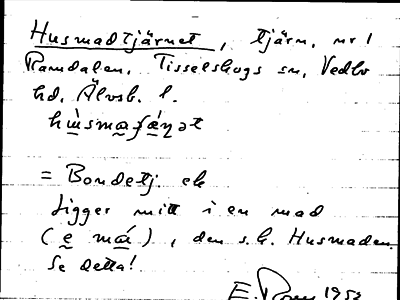 Husmadtjärnet, tjärn, nr 1
Ramdalen, Tisselskogs sn, Vedbo
hd, Älvsb. l.
= Bondetj. ek
Ligger mitt i en mad
(e má), den s.k. Husmaden.
Se detta!
E. 1952